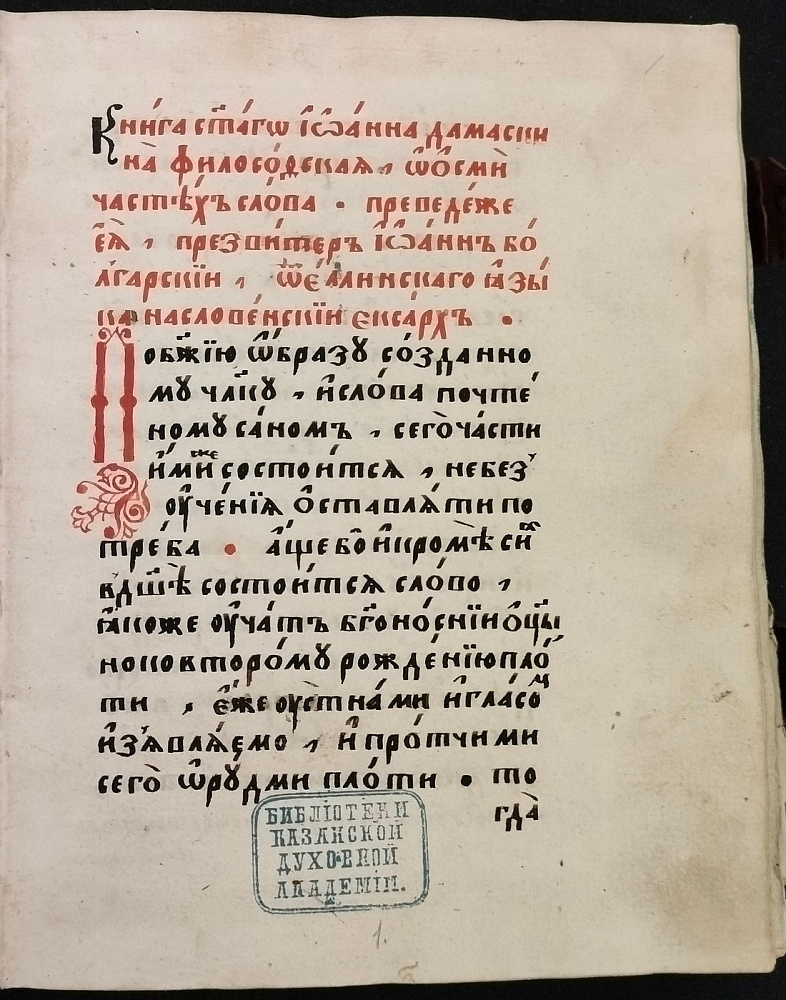 Кни́га ст҃а́гѡ і҆ѡа́нна дамаски
на̀ филосо́фская, ѡ҆ о҆смѝ
часте́хъ сло́ва · преведе́же
є҆ѧ̀, презвитеръ і҆ѡа́ннъ бо́
лгарскїи, ѿ є҆ллинскаго ꙗ҆зы́
ка на слове́нскїи єкса́рхъ ·
По бж҃їю ѡ҆́бразꙋ со́зданно
мꙋ чл҃кꙋ, и҆ сло́ва почте́
номꙋ са́номъ, сего̀ ча́сти
и҆́миже состои́тся, не без̾
оу҆че́нїѧ ѻ҆ставлѧ́ти по
тре́ба · а҆́ще бо и҆ кромѣ си́х
в дш҃ѣ̀ состои́тсѧ сло́во,
ꙗ҆́коже оу҆ча́тъ бг҃оно́снїи ѻ҆ц҃ы
но ко второ́мꙋ рожде́нїю пло́
ти, є҆́же оустна́ми и҆ гла́сом
и҆з̾ѧвлѧ́емо, и҆ про́тчими
сего̀ ѡ҆рꙋ́дми пло́ти · то
гда̀
БИБЛІОТЕКИ
КАЗАНСКОЙ
ДУХОВНОЙ
АКАДЕМІИ.
1.